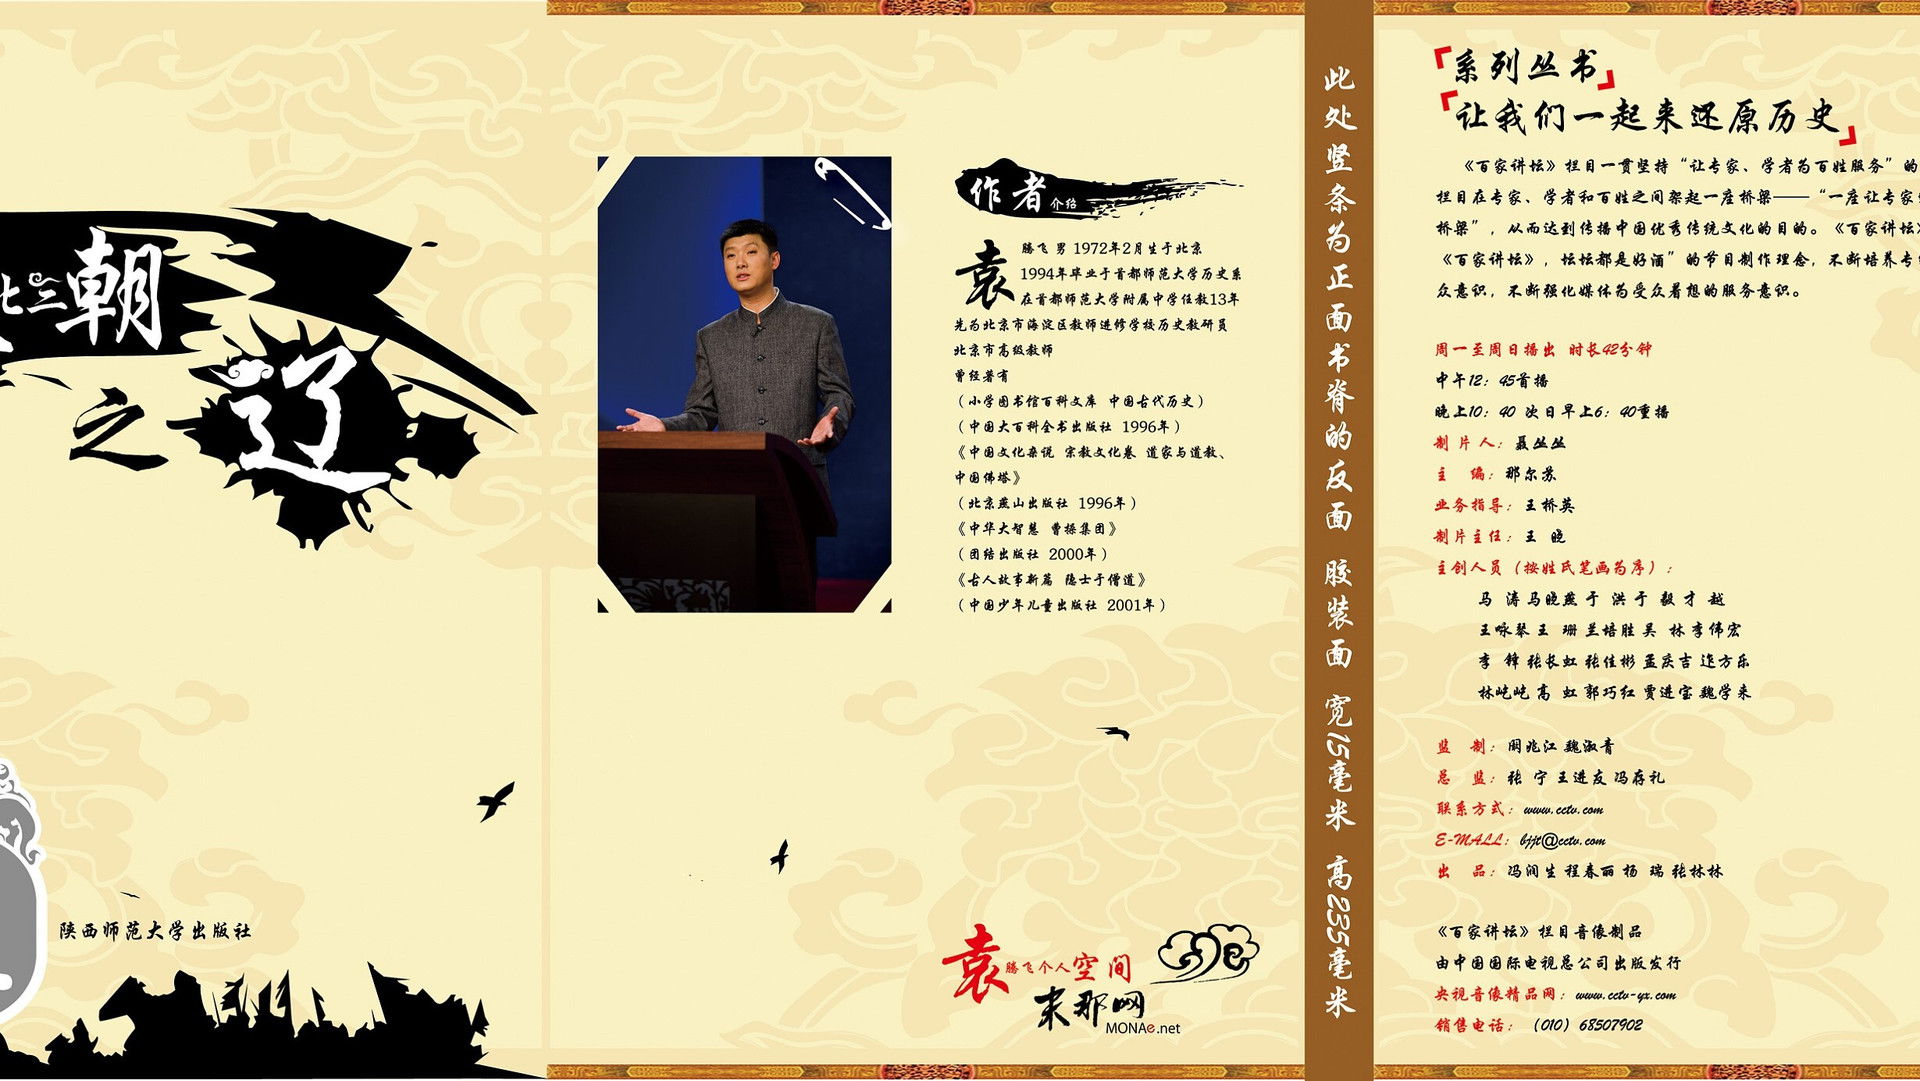 朝
之
辽
陕西师范大学出版社
作者介绍
袁腾飞 男 1972年2月生于北京
1994年毕业于首都师范大学历史系
在首都师范大学附属中学任教13年
先为北京市海淀区教师进修学校历史教研员
北京市高级教师
曾经著有
（小学图书馆百科文库 中国古代历史）
（中国大百科全书出版社 1996年）
《中国文化杂说 宗教文化卷 道家与道教、
中国佛塔》
（北京燕山出版社 1996年）
《中华大智慧 曹操集团》
（团结出版社 2000年）
《古人故事新篇 隐士于僧道》
（中国少年儿童出版社 2001年）
袁腾飞个人空间
末那网
MONAe.net
此处竖条为正面书脊的反面 胶装面 宽15毫米 高235毫米
「系列丛书」
「让我们一起来还原历史」
《百家讲坛》栏目一贯坚持“让专家、学者为百姓服务”的
栏目在专家、学者和百姓之间架起一座桥梁——“一座让专家
桥梁”，从而达到传播中国优秀传统文化的目的。《百家讲坛
《百家讲坛》，坛坛都是好酒”的节目制作理念，不断培养专
众意识，不断强化媒体为受众着想的服务意识。
周一至周日播出 时长42分钟
中午12：45首播
晚上10：40 次日早上6：40重播
制片人：聂丛丛
主 编：那尔苏
业务指导：王桥英
制片主任：王 晓
主创人员（按姓氏笔画为序）：
马 涛 马晓燕 于 洪 于 毅 才 越
王咏琴 王 珊 兰培胜 吴 林 李伟宏
李 锋 张长虹 张佳彬 孟庆吉 迮方乐
林屹屹 高 虹 郭巧红 贾进宝 魏学来
监 制：阚兆江 魏淑青
总 监：张 宁 王进友 冯存礼
联系方式：www.cctv.com
E-MALL：bjjt@cctv.com
出 品：冯润生 程春丽 杨 瑞 张林林
《百家讲坛》栏目音像制品
由中国国际电视总公司出版发行
央视音像精品网：www.cctv-yx.com
销售电话：（010）68507902